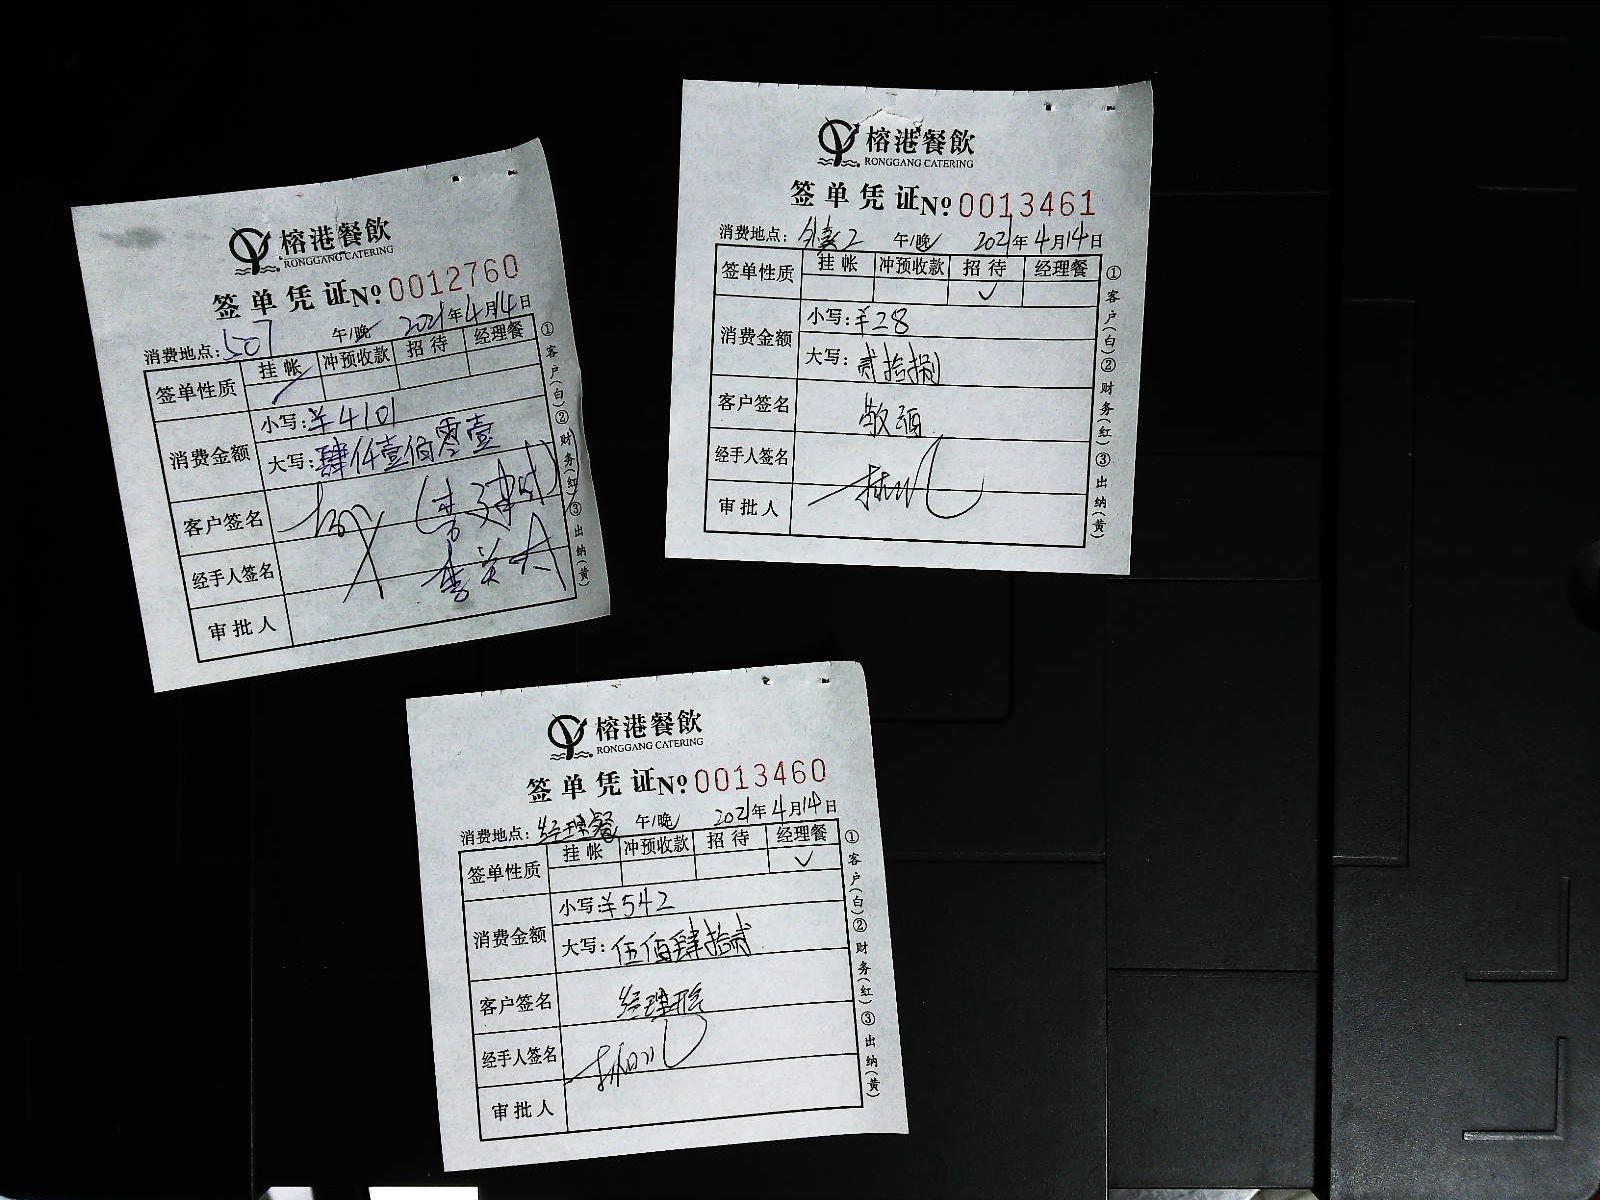 榕港餐飲
RONGGANG CATERING
签单凭证No 0012760
消费地点: 507 午/晚 2021年4月14日
签单性质 挂帐 冲预收款 招待 经理餐
消费金额
小写: ¥4101
大写: 肆仟壹佰零壹
客户签名
经手人签名
审批人
①客户(白)②财务(红)③出纳(黄)
榕港餐飲
RONGGANG CATERING
签单凭证No 0013461
消费地点: 午/晚 2021年4月14日
签单性质 挂帐 冲预收款 招待 经理餐
消费金额
小写: ¥28
大写: 贰拾捌
客户签名
经手人签名
审批人
①客户(白)②财务(红)③出纳(黄)
榕港餐飲
RONGGANG CATERING
签单凭证No 0013460
消费地点: 经理餐 午/晚 2021年4月14日
签单性质 挂帐 冲预收款 招待 经理餐
消费金额
小写: ¥542
大写: 伍佰肆拾贰
客户签名 经理
经手人签名
审批人
①客户(白)②财务(红)③出纳(黄)